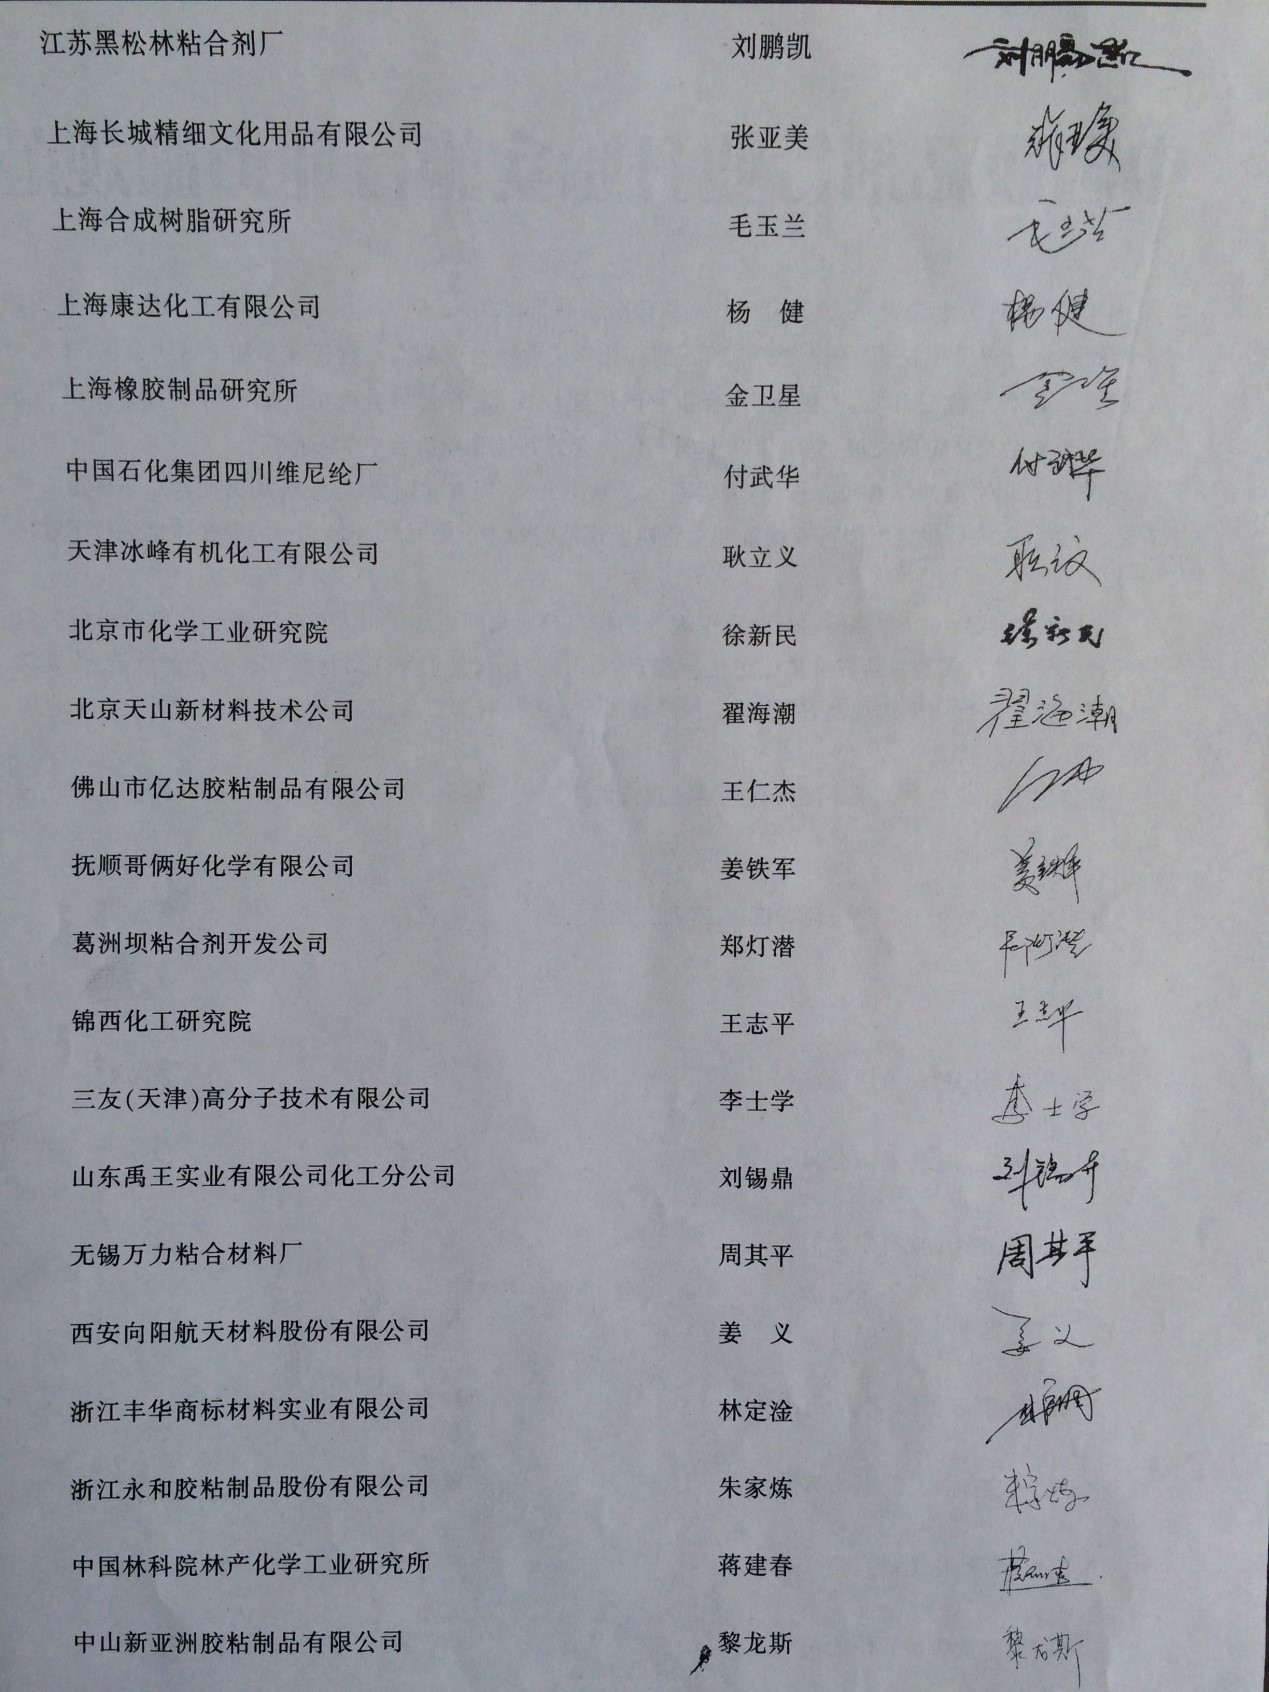 江苏黑松林粘合剂厂 刘鹏凯 刘鹏凯
上海长城精细文化用品有限公司 张亚美 张亚美
上海合成树脂研究所 毛玉兰 毛玉兰
上海康达化工有限公司 杨 健 杨健
上海橡胶制品研究所 金卫星
中国石化集团四川维尼纶厂 付武华 付武华
天津冰峰有机化工有限公司 耿立义 耿立义
北京市化学工业研究院 徐新民 徐新民
北京天山新材料技术公司 翟海潮 翟海潮
佛山市亿达胶粘制品有限公司 王仁杰
抚顺哥俩好化学有限公司 姜铁军 姜铁军
葛洲坝粘合剂开发公司 郑灯潜
锦西化工研究院 王志平 王志平
三友(天津)高分子技术有限公司 李士学 李士学
山东禹王实业有限公司化工分公司 刘锡鼎
无锡万力粘合材料厂 周其平 周其平
西安向阳航天材料股份有限公司 姜 义 姜义
浙江丰华商标材料实业有限公司 林定淦
浙江永和胶粘制品股份有限公司 朱家炼 朱家炼
中国林科院林产化学工业研究所 蒋建春
中山新亚洲胶粘制品有限公司 黎龙斯 黎龙斯